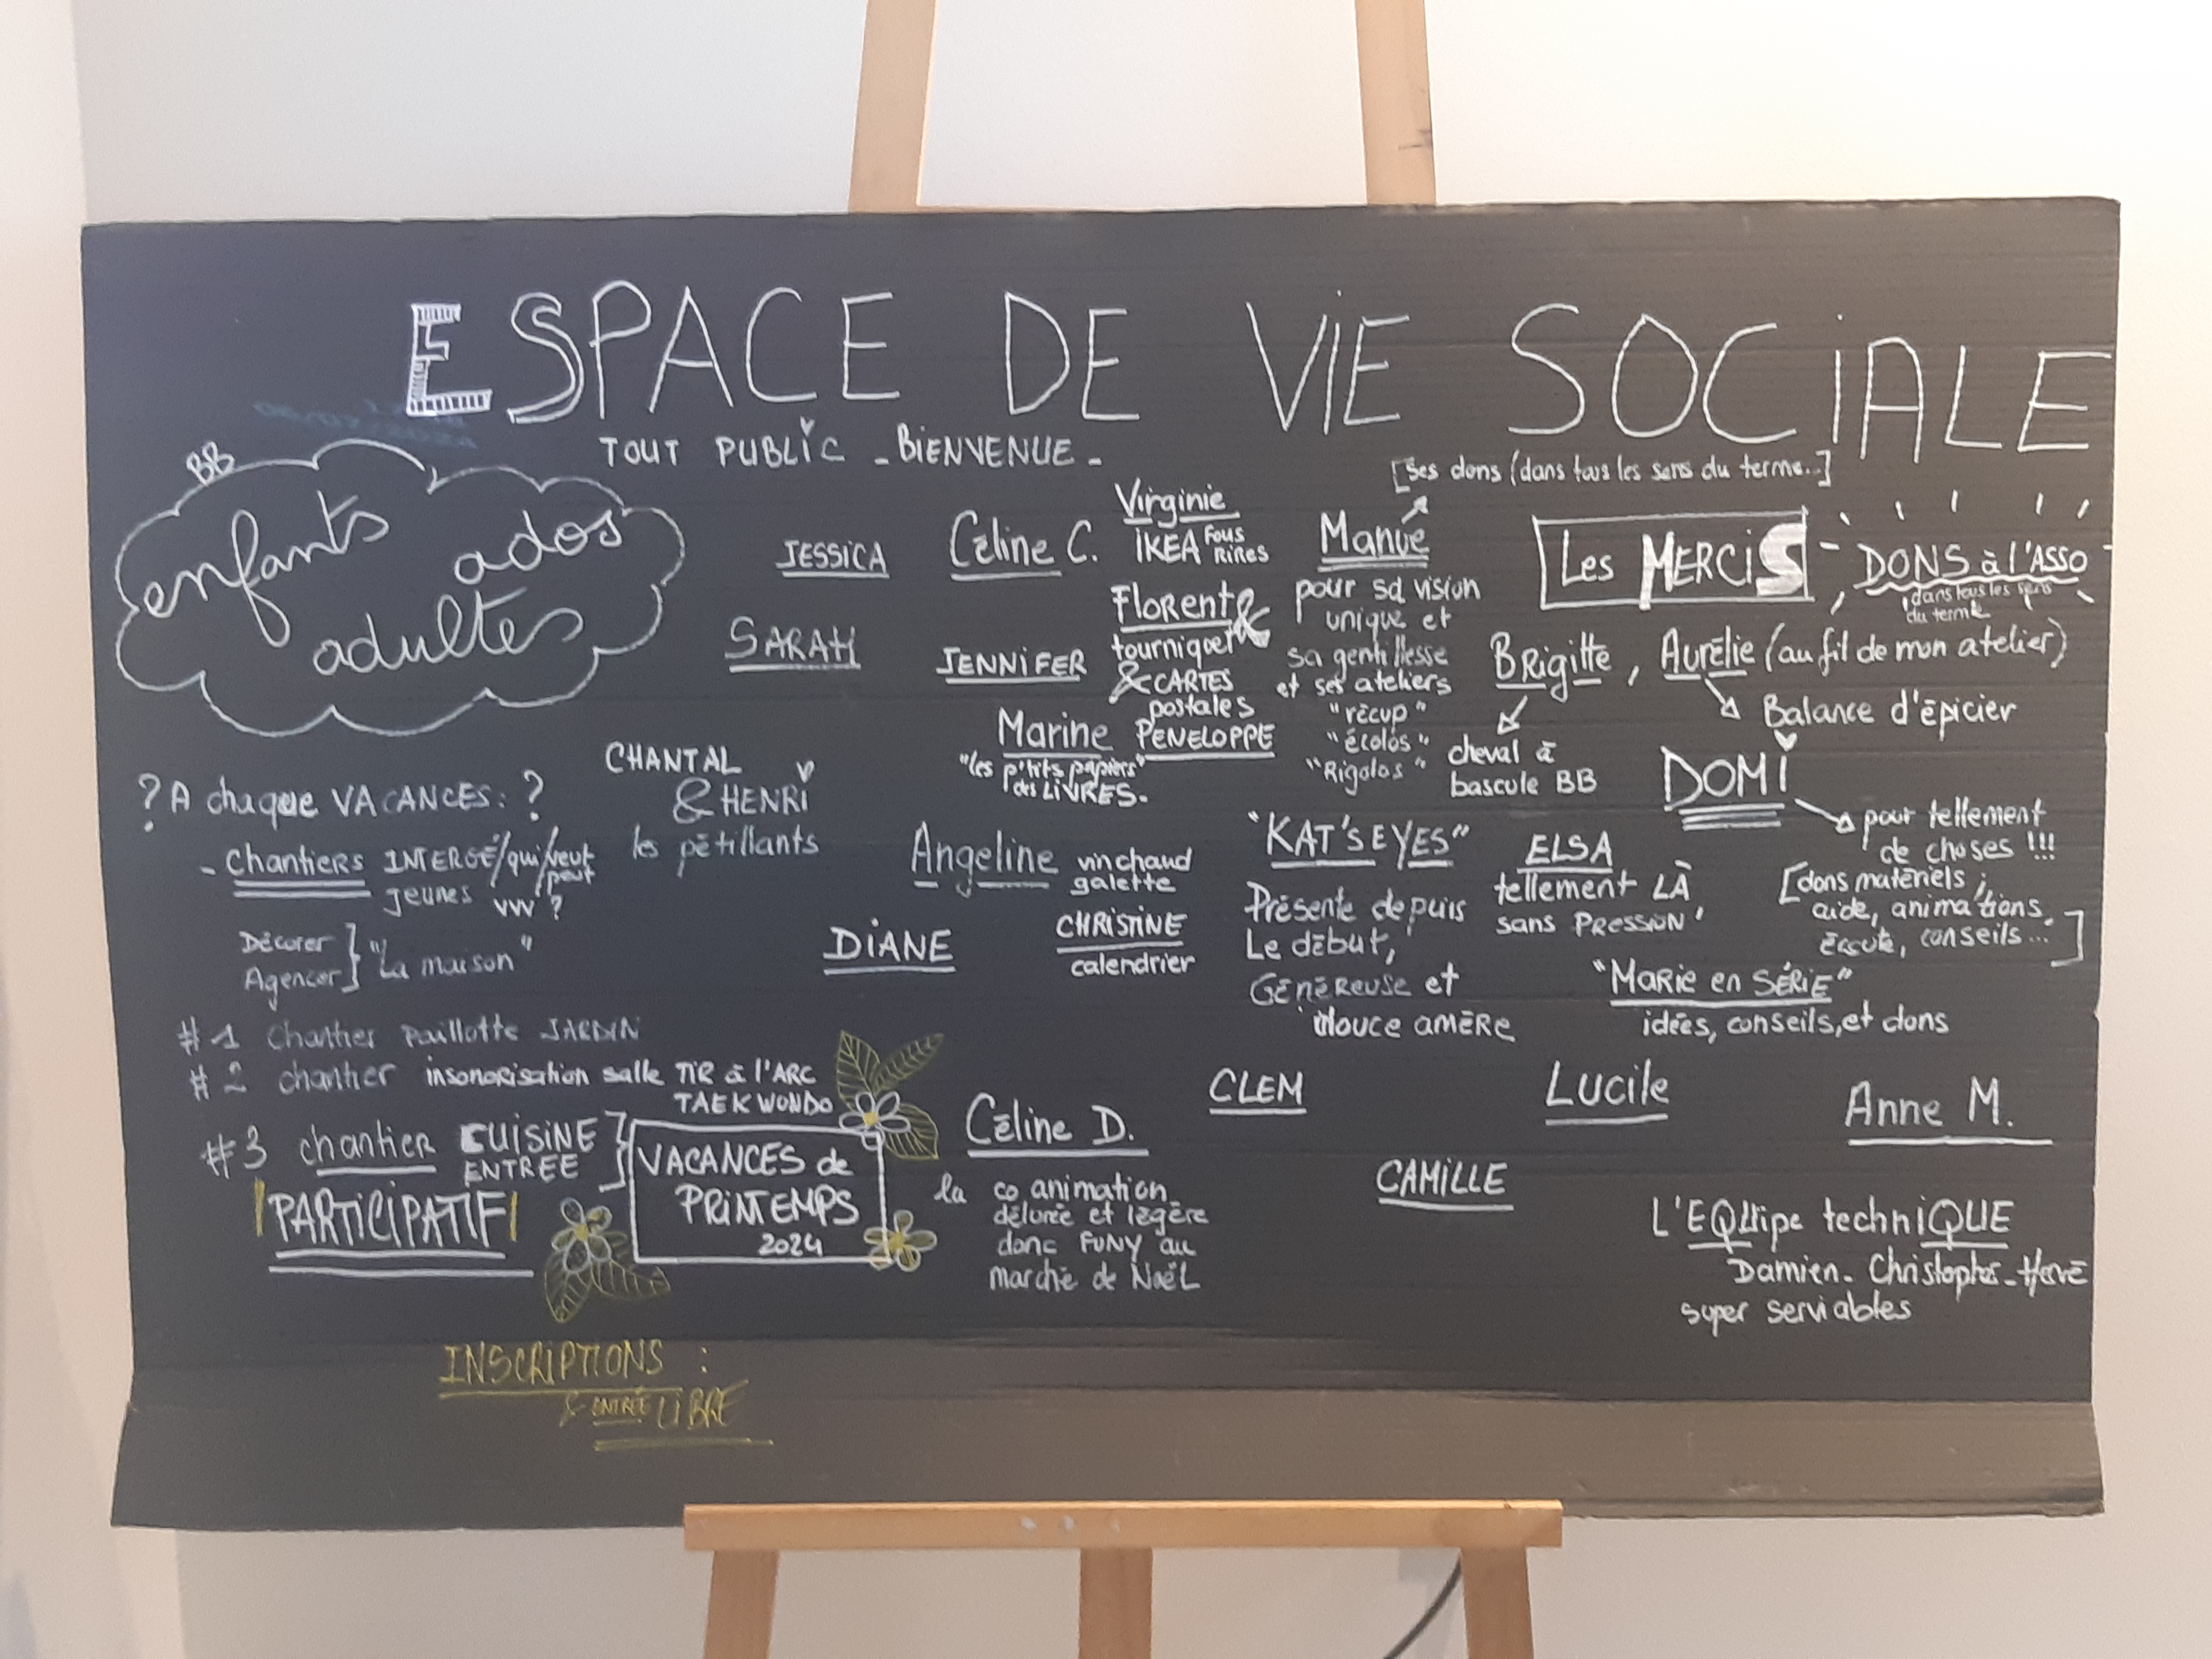 ESPACE DE VIE SOCIALE
TOUT PUBLIC - BIENVENUE -
BB
enfants
ados
adultes
? A chaque VACANCES : ?
- Chantiers INTERGÉ/qui/veut
/peut
jeunes VVV ?
Décorer
Agencer } "La maison"
#1 Chantier Paillotte JARDIN
#2 chantier insonorisation salle TIR à l'ARC
TAEKWONDO
#3 chantier CUISINE
ENTREE
PARTICIPATIF
VACANCES de
PRINTEMPS
2024
INSCRIPTIONS :
& ENTRÉE LIBRE
CHANTAL
& HENRI
les pétillants
JESSICA
SARAH
Céline C.
JENNIFER
Virginie
IKEA Fous
RIRES
Florent &
tourniquet
& CARTES
postales
PENELOPPE
Marine
"les p'tits papiers"
des LIVRES.
Angeline vin chaud
galette
DIANE
CHRISTINE
calendrier
[ses dons (dans tous les sens du terme..]
Manue
pour sa vision
unique et
sa gentillesse
et ses ateliers
"récup"
"écolos"
"Rigolos"
Les MERCIS
DONS à l'ASSO
dans tous les sens
du terme
Brigitte, Aurélie (au fil de mon atelier)
Balance d'épicier
cheval à
bascule BB
DOMI
pour tellement
de choses !!!
[dons matériels ;
aide, animations,
écoute, conseils...]
"KAT'S EYES"
Présente depuis
Le début,
Généreuse et
douce amère
ELSA
tellement LÀ
sans PRESSION
"Marie en SÉRIE"
idées, conseils, et dons
CLEM
Lucile
Anne M.
Céline D.
la co animation
délurée et légère
donc FUNY au
marché de Noël
CAMILLE
L'EQUipe techniQUE
Damien - Christophe - Hervé
super serviables